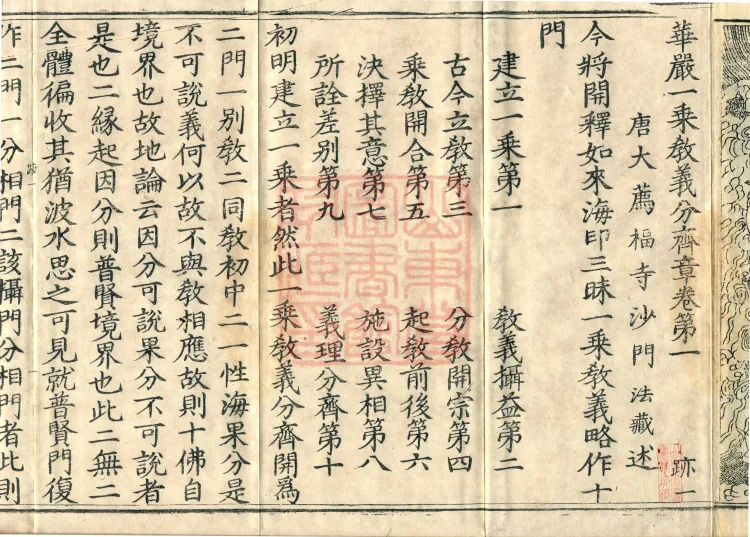 華嚴一乘教義分齊章卷第一　跡一
唐大薦福寺沙門法藏述
今將開釋如來海印三昧一乘教義略作十
門
建立一乘第一　教義攝益第二
古今立教第三　分教開宗第四
乘教開合第五　起教前後第六
決擇其意第七　施設異相第八
所詮差別第九　義理分齊第十
初明建立一乘者然此一乘教義分齊開為
二門一別教二同教初中二一性海果分是
不可說義何以故不與教相應故則十佛自
境界也故地論云因分可說果分不可說者
是也二緣起因分則普賢境界也此二無二
全體徧收其猶波水思之可見就普賢門復
作二門一分相門二該攝門分相門者此則
跡一